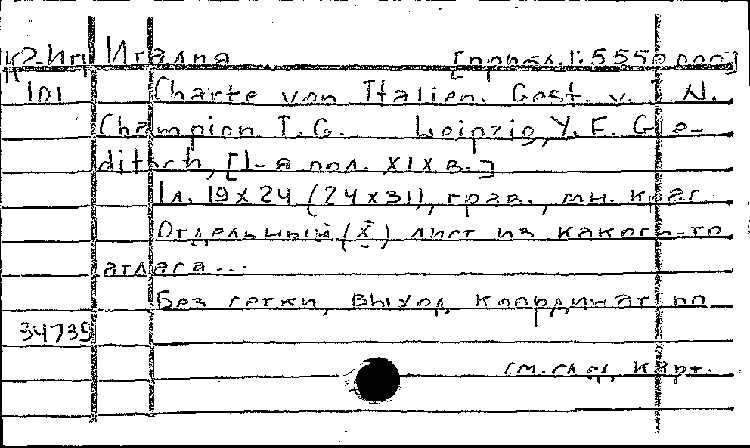 К2-Ит Италия [прибл. 1:5550 000]
101 Charte von Italien. Gest. v. N.
Champion. T. G. Leipzig, Y. F. Gle-
ditsch, [1-я пол. XIX в.]
1 л. 19 х 24 (24 х 31), грав., мн. крас.
Отдельный (X) лист из какого-то
атласа...
Без сетки, выход. координат по
34739
см. след. карт.